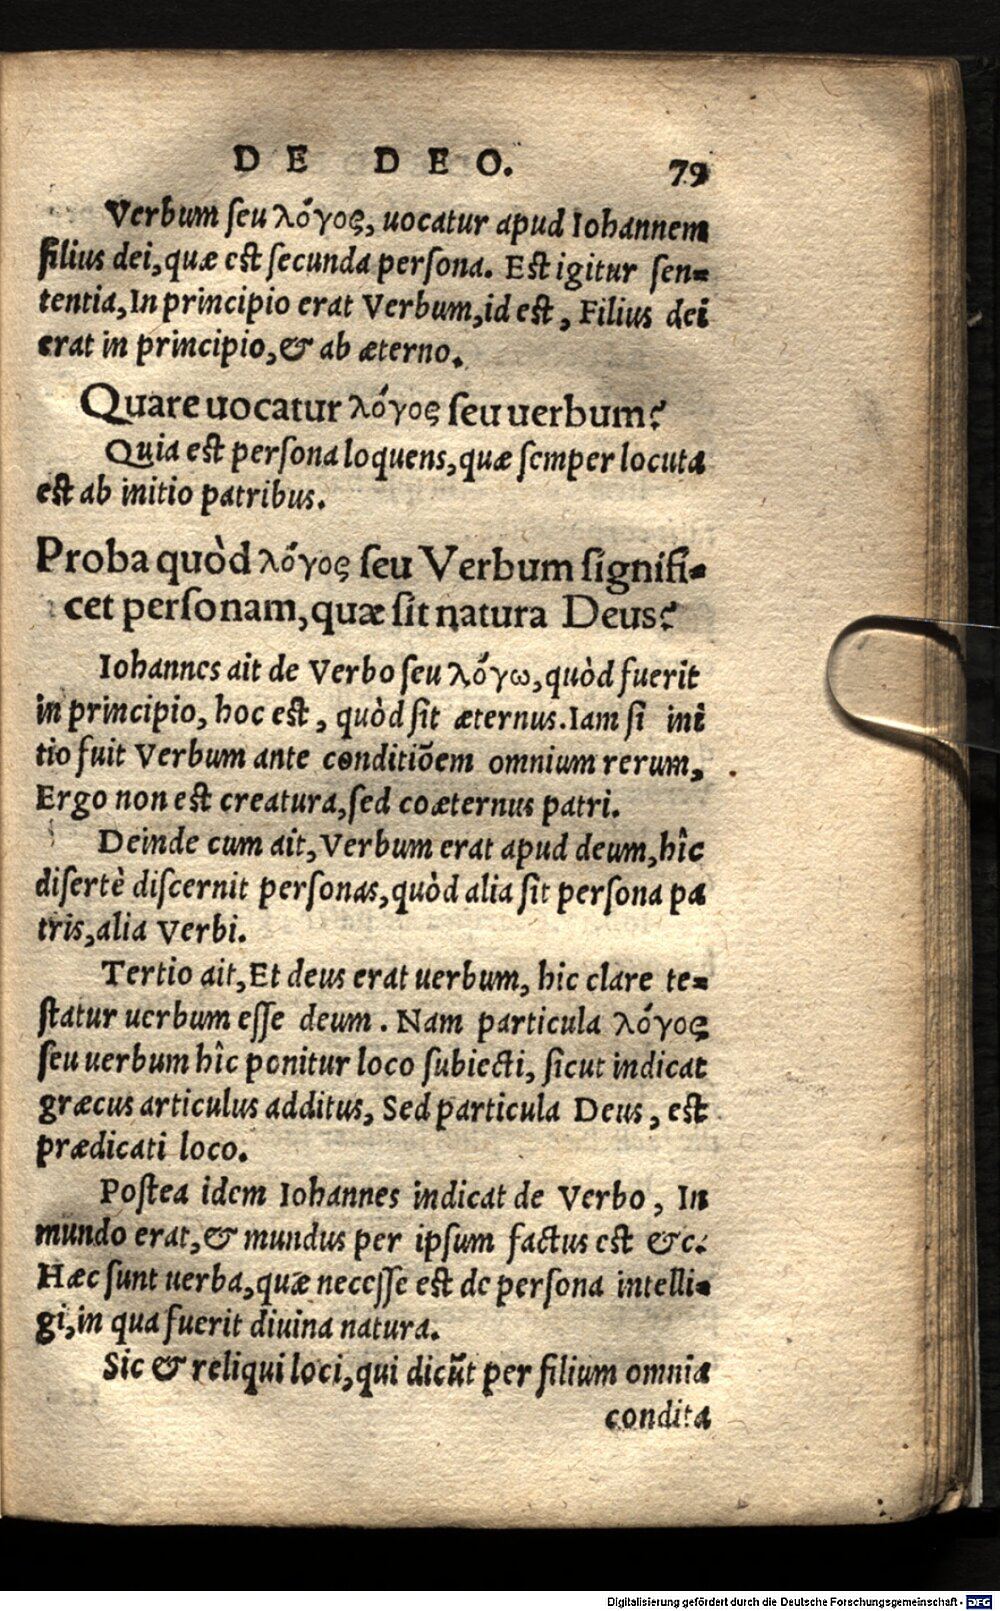 DE DEO. 79
Verbum ſeu λόγος, uocatur apud Iohannem
filius dei, quæ est ſecunda perſona. Est igitur ſen-
tentia, In principio erat Verbum, id est, Filius dei
erat in principio, & ab æterno.
Quare uocatur λόγος ſeu uerbum?
Quia est perſona loquens, quæ ſemper locuta
est ab initio patribus.
Proba quòd λόγος ſeu Verbum ſignifi-
cet perſonam, quæ ſit natura Deus?
Iohannes ait de Verbo ſeu λόγω, quòd fuerit
in principio, hoc est, quòd ſit æternus. Iam ſi ini
tio fuit Verbum ante conditiõem omnium rerum,
Ergo non est creatura, ſed coæternus patri.
Deinde cum ait, Verbum erat apud deum, hîc
diſertè diſcernit perſonas, quòd alia ſit perſona pa
tris, alia Verbi.
Tertio ait, Et deus erat uerbum, hic clare te-
ſtatur uerbum eſſe deum. Nam particula λόγος
ſeu uerbum hîc ponitur loco ſubiecti, ſicut indicat
græcus articulus additus, Sed particula Deus, est
prædicati loco.
Poſtea idem Iohannes indicat de Verbo, In
mundo erat, & mundus per ipſum factus est &c.
Hæc ſunt uerba, quæ neceſſe est de perſona intelli-
gi, in qua fuerit diuina natura.
Sic & reliqui loci, qui dicũt per filium omnia
condita
Digitalisierung gefördert durch die Deutsche Forschungsgemeinschaft - DFG